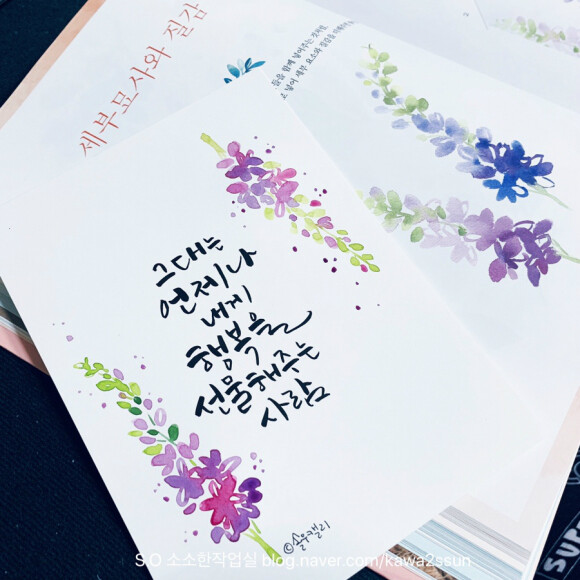 세부묘사와 질감
그대는
언제나
내게
행복을
선물해주는
사람
S.O 소소한작업실 blog.naver.com/kawa2ssun